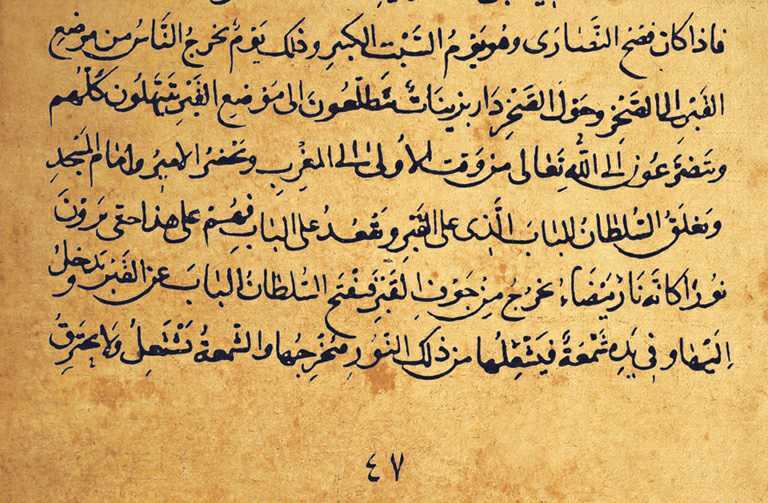 فاذا كان فصح النصارى وهو يَوْمُ السَّبْت الكبيرِ وذلك يَوْمٌ يخرجُ النَّاسُ من موضع
القَبْرِ الى الصَّخْرِ وحَوْلَ الصَّخْرِ دَارَبَزِينَاتٌ يَطَّلِعُونَ الى مَوْضعِ القَبْرِ يَبْتَهِلُون كلُّهم
ويتضرَّعُون الى اللّٰهِ تَعَالى من وَقت الأُولى الى المغرِبِ ويحضرُ الأميرُ وامَام المَسْجدِ
ويَغلقُ السُّلطَانُ البَابَ الَّذِى على القَبْرِ ويَقعُدُ على البَابِ فهُمْ على هذا حتى يرَوْنَ
نورًا كأنَّه نَارٌ بَيْضَاءُ يخرُجُ مِنْ جَوْفِ القَبْرِ فيَفْتَح السُّلطَانُ البَابَ عن القَبْرِ يَدخلُ
إِلَيْهَا وفى يَدِه شَمْعَةٌ فَيشْعِلُها من ذلك النُّورِ فيَخْرجُها والشَّمعةُ تَشْتَعِلُ ولا يحترِقُ
٤٧